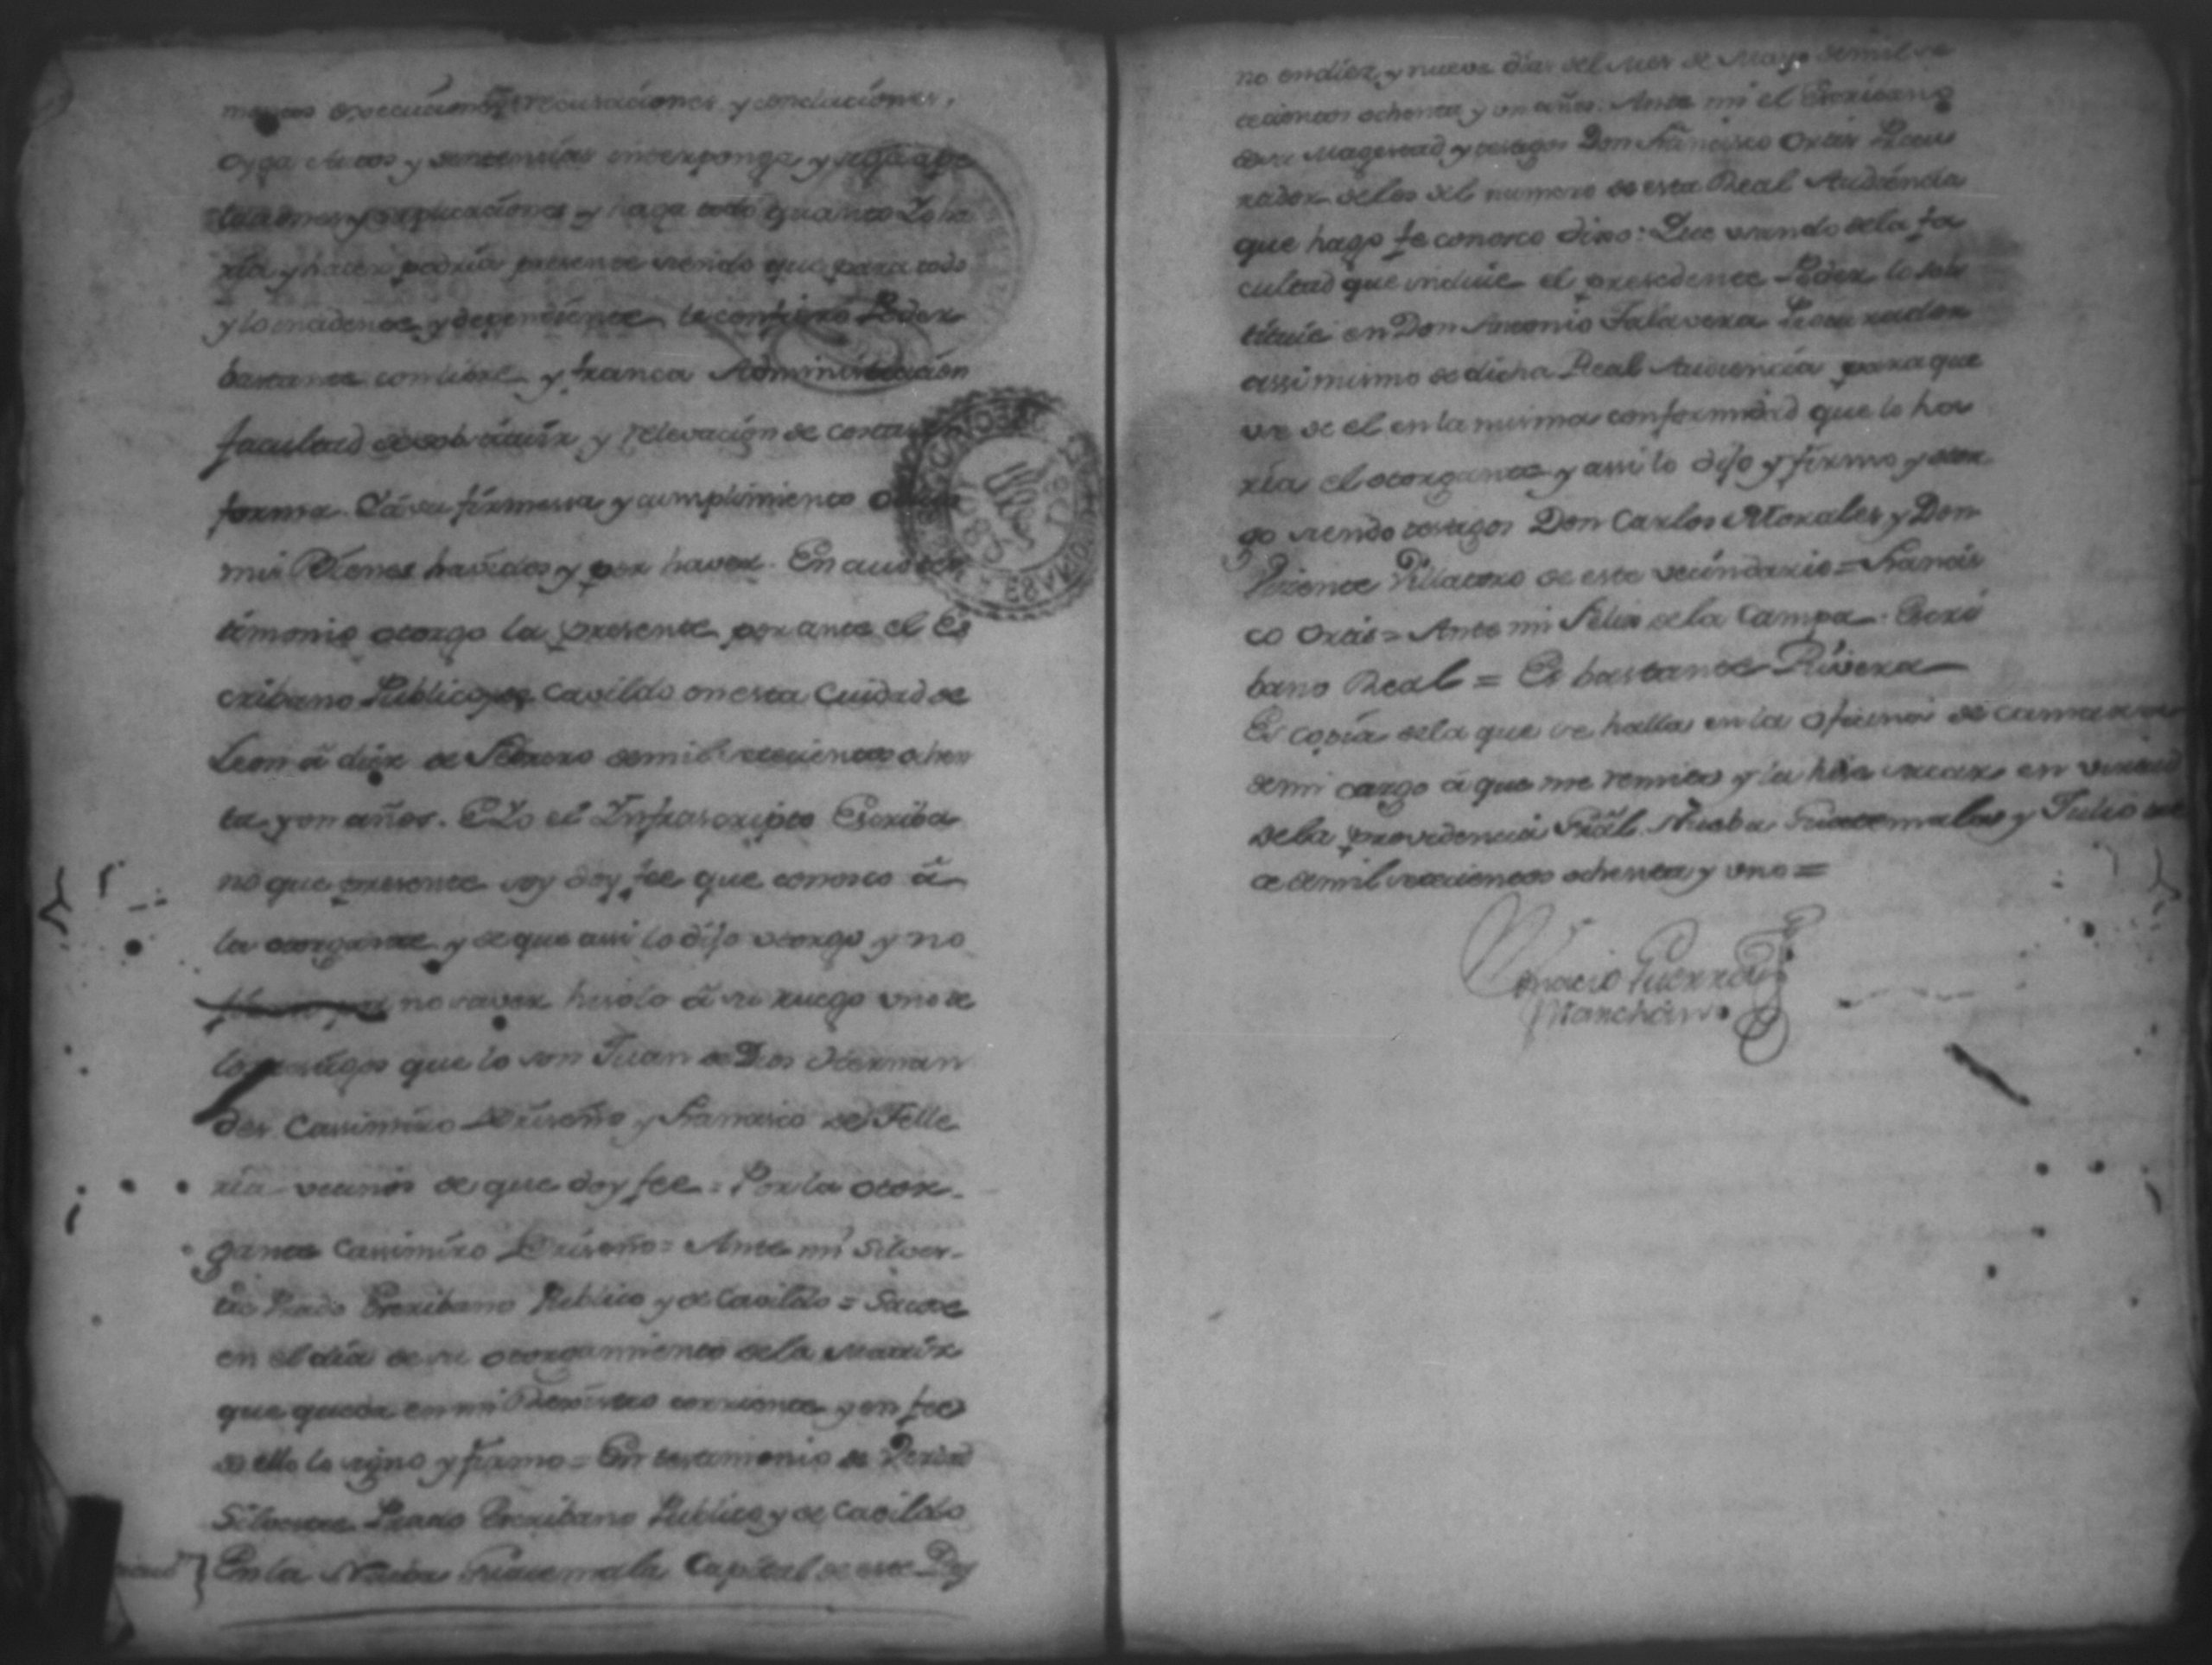 execuciones recusaciones y conclaciones,
Oyga Autos y sentencias interponga y siga ape
laciones y suplicaciones y haga todo quanto Yo ha
ria y hacer podria presente siendo que para todo
y lo incidente y dependiente le confiero Poder
bastante con libre y franca Administracion
facultad de sobstituir y relevacion de costas en
forma. Y á su firmessa y cumplimiento
mis Vienes havidos y por haver. En cuio tes
timonio otorgo la presente por ante el Es
cribano Publico y de Cavildo en esta Cuidad de
Leon á diez de Febrero de mil setecientos ochen
ta y un años. E Yo el Infrascripto Escriba
no que presente soy doy fee que conosco á
la otorgante y de que assi lo dijo otorgo y no
no saver hisolo á su ruego uno de
los testigos que lo son Juan de Dios Hernan
des Cassimiro Briseño y Francisco de Telle
ria vecinos de que doy fee = Por la otor-
gante Cassimiro Briseño = Ante mi Silves-
tre Prado Escribano Publico y de Cavildo = Sacose
en el dia de su otorgamiento de la Matriz
que queda en mi Registro corriente y en fee
de ello lo signo y firmo = En testimonio de Verdad
Silvestre Prado Escribano Publico y de Cavildo
En la Nueba Guatemala Capital de este Rey
no en diez y nueve dias del Mes de Mayo de mil se
tecientos ochenta y un años: Ante mi el Escribano
de su Magestad y testigos Don Francisco Ortis Procu
rador de los del numero de esta Real Audiencia
que hago fe conosco dixo: Que usando de la fa
cultad que incluie el presedente Poder lo sobs
tituie en Don Antonio Talavera Procurador
assi mismo de dicha Real Audiencia para que
use de el en la misma conformidad que lo ha
ria el otorgante y assi lo dijo y firmo y otor
go siendo testigos Don Carlos Morales y Don
Visente Villatoro de este vecindario = Francis
co Ortis = Ante mi Felix de la Campa. Escri
bano Real = Es bastante Rivera
Es copia de la que se halla en la Oficina de Camara
de mi cargo á que me remito y la hise sacar en virtud
de la providencia Nueba Guatemala y Julio
de mil setecientos ochenta y uno =
Ignacio Guerra
Marchán